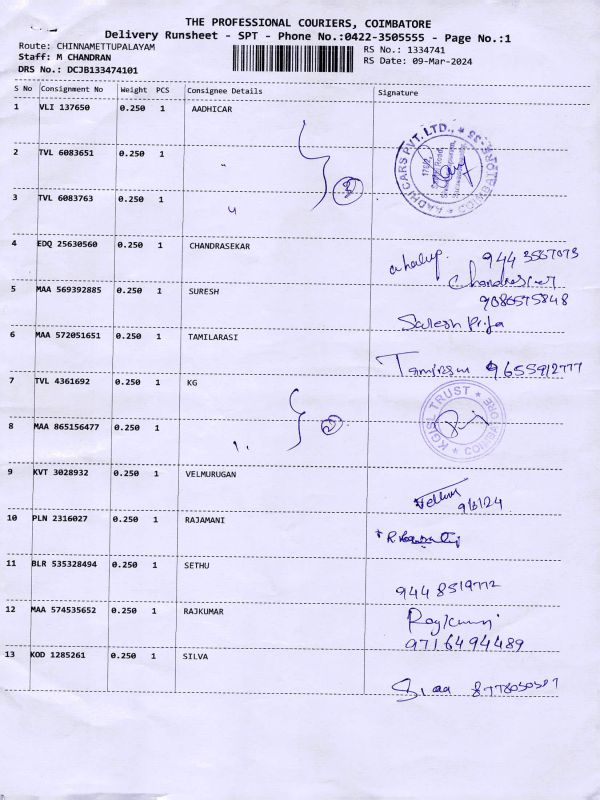 THE PROFESSIONAL COURIERS, COIMBATORE
Delivery Runsheet - SPT - Phone No.:0422-3505555 - Page No.:1
Route: CHINNAMETTUPALAYAM
Staff: M CHANDRAN
DRS No.: DCJB133474101
RS No.: 1334741
RS Date: 09-Mar-2024
S No Consignment No Weight PCS Consignee Details Signature
1 VLI 137650 0.250 1 AADHICAR
2 TVL 6083651 0.250 1 "
3 TVL 6083763 0.250 1 "
AADHI CARS PVT. LTD., * COIMBATORE-35 *
4 EDQ 25630560 0.250 1 CHANDRASEKAR
944 3567073
Chandrasekar
5 MAA 569392885 0.250 1 SURESH
9086575848
Suresh Priya
6 MAA 572051651 0.250 1 TAMILARASI
9655912777
7 TVL 4361692 0.250 1 KG
KGISL TRUST * COIMBATORE *
8 MAA 865156477 0.250 1
9 KVT 3028932 0.250 1 VELMURUGAN
10 PLN 2316027 0.250 1 RAJAMANI
11 BLR 535328494 0.250 1 SETHU
9448519772
12 MAA 574535652 0.250 1 RAJKUMAR
Rajkumar
9716494489
13 KOD 1285261 0.250 1 SILVA